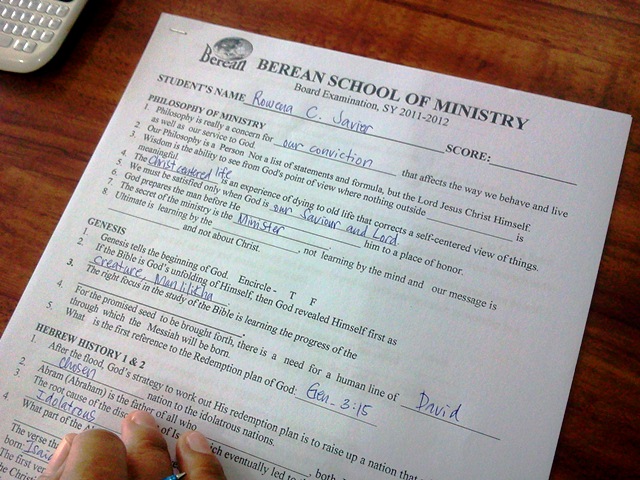 Berean
BEREAN SCHOOL OF MINISTRY
Board Examination, SY 2011-2012
STUDENT'S NAME Rowena C. Javier SCORE:
PHILOSOPHY OF MINISTRY
1. Philosophy is really a concern for our conviction that affects the way we behave and live
as well as our service to God
2. Our Philosophy is a Person Not a list of statements and formula, but the Lord Jesus Christ Himself.
3. Wisdom is the ability to see from God's point of view where nothing outside is
meaningful.
4. The Christ centered life is an experience of dying to old life that corrects a self-centered view of things.
5. We must be satisfied only when God is our Saviour and Lord
6. God prepares the man before He him to a place of honor.
7. The secret of the ministry is the Minister
8. Ultimate is learning by the , not learning by the mind and our message is
and not about Christ.
GENESIS
1. Genesis tells the beginning of God. Encircle - T F
2. If the Bible is God's unfolding of Himself, then God revealed Himself first as
creature, Manlilikha
3. The right focus in the study of the Bible is learning the progress of the
4. For the promised seed to be brought forth, there is a need for a human line of David
through which the Messiah will be born.
5. What is the first reference to the Redemption plan of God: Gen. 3:15
HEBREW HISTORY 1 & 2
1. After the flood, God's strategy to work out His redemption plan is to raise up a nation that
chosen nation to the idolatrous nations.
2. Abram (Abraham) is the father of all who
3. The root cause of the which eventually led to
Idolatrous , both
4. What part of the
The verse
born:
The first
the